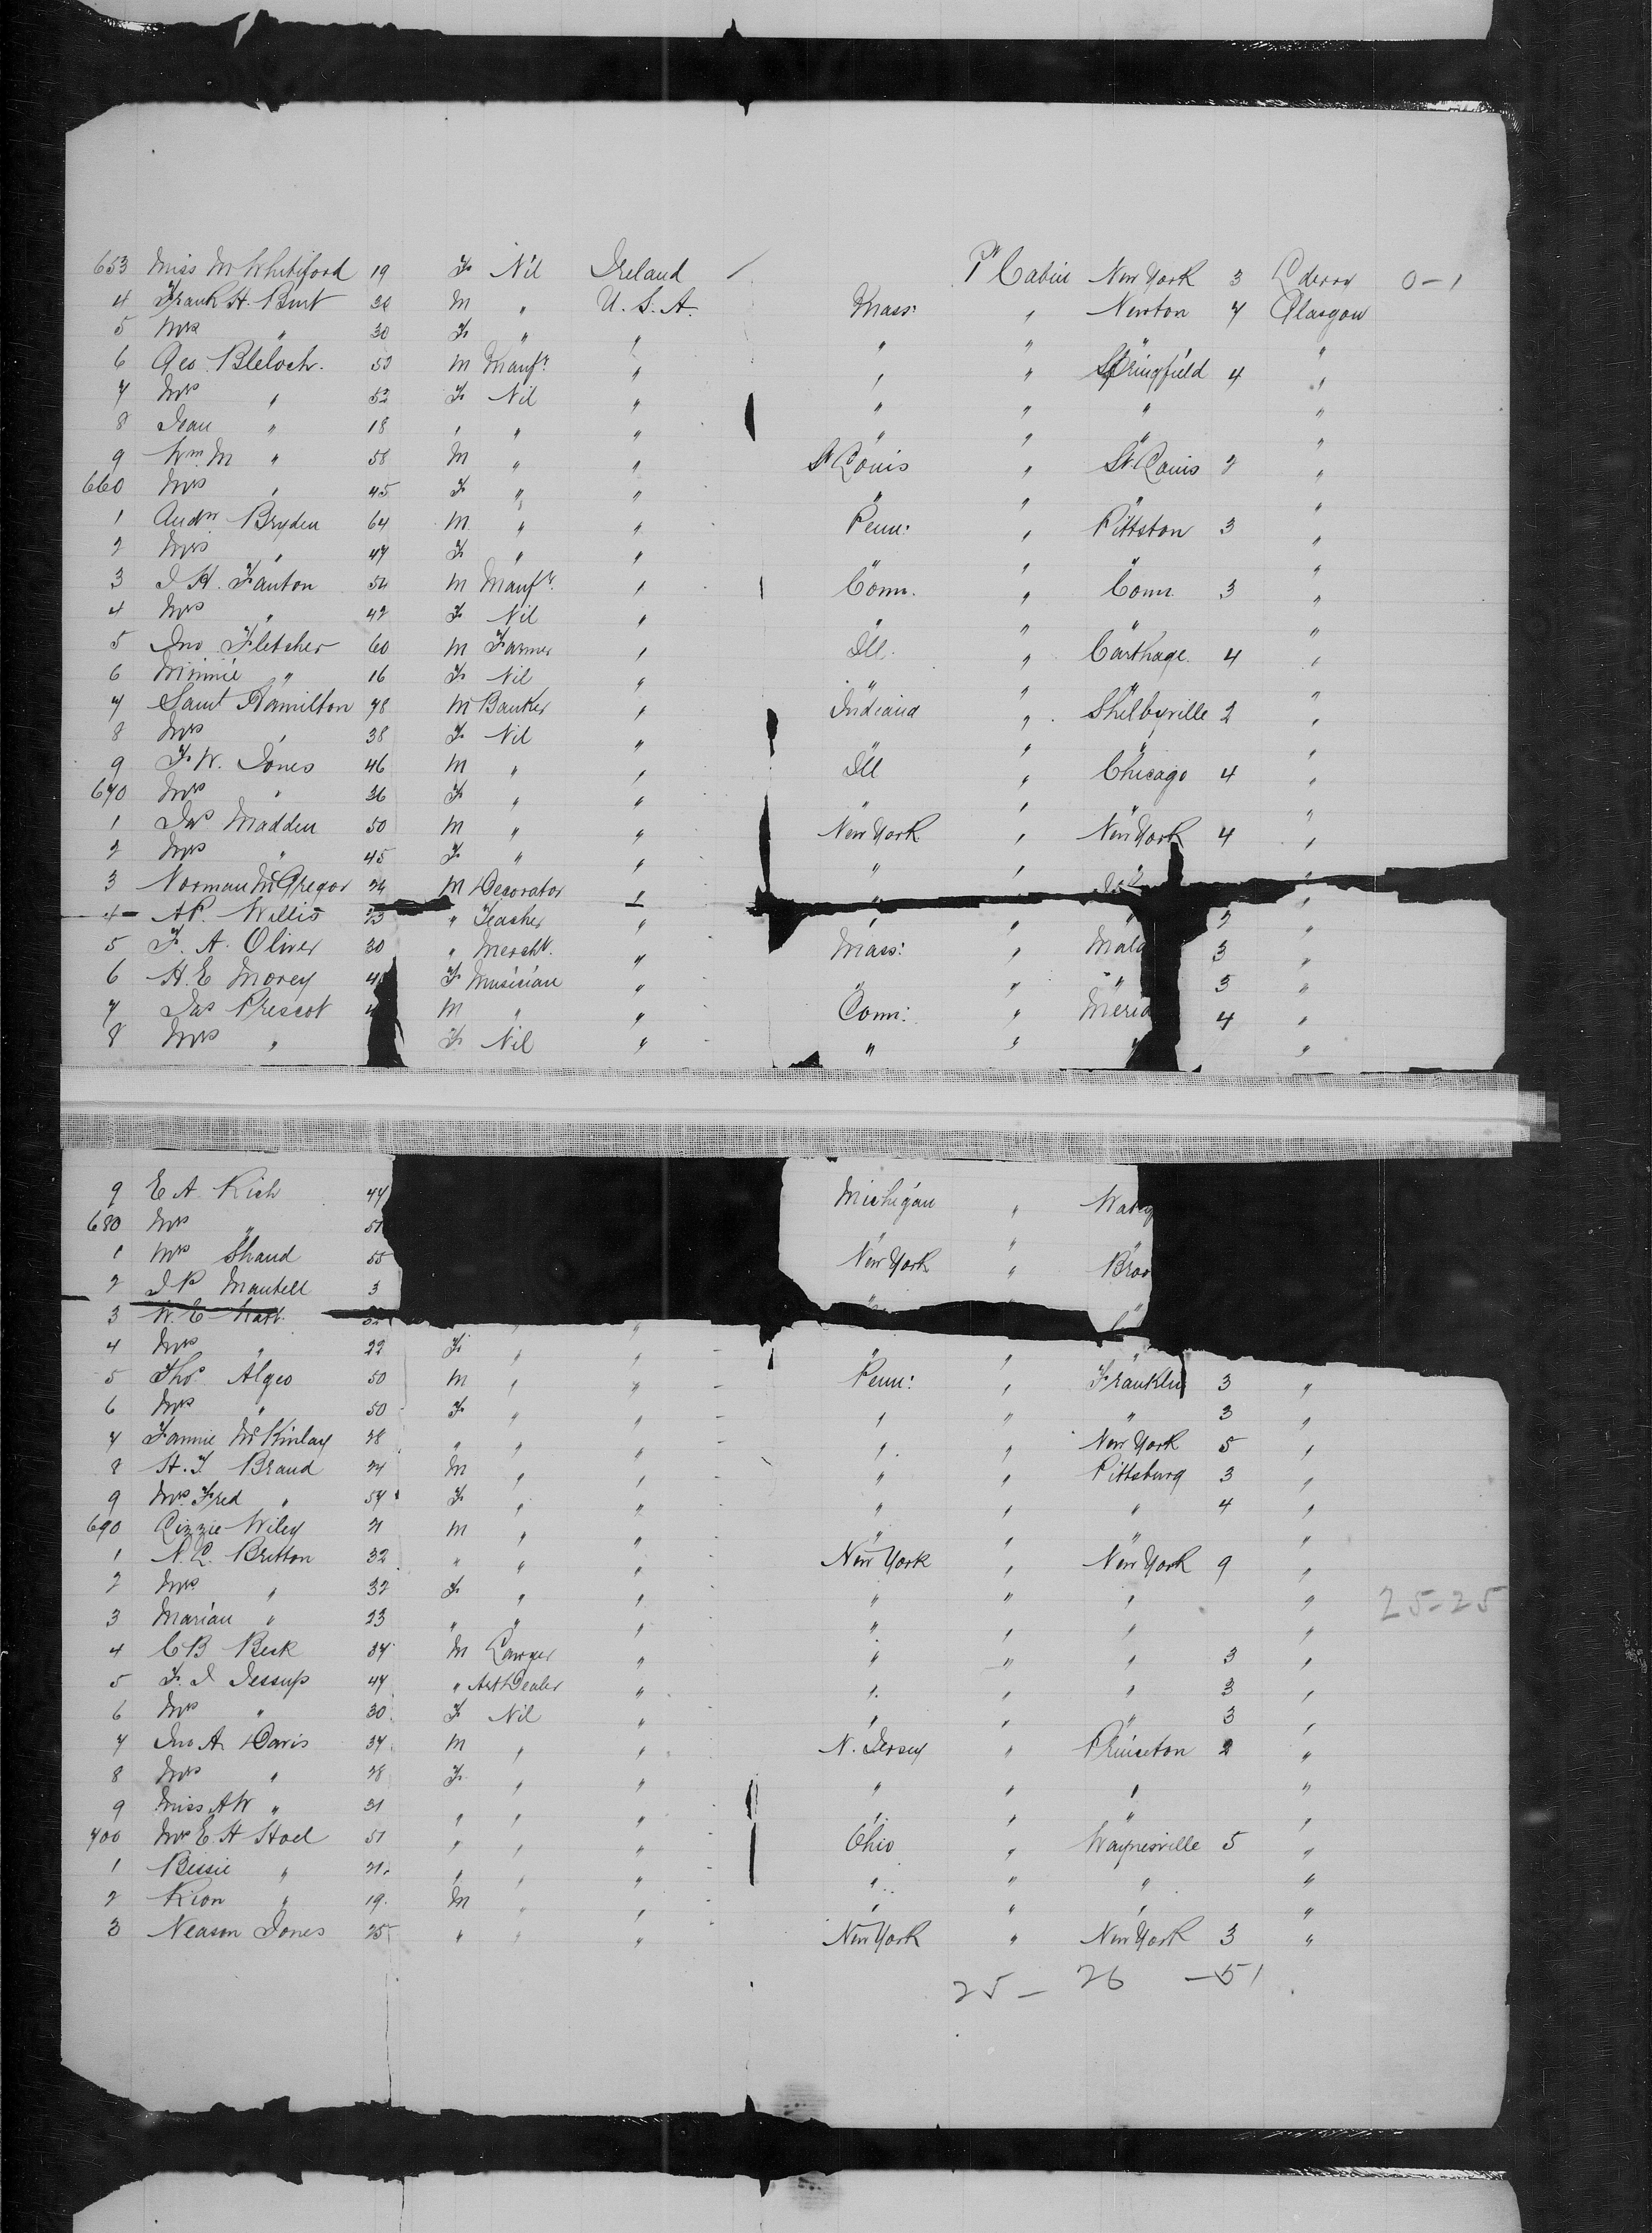 653 Miss M Whiteford 19 F Nil Ireland / 1st Cabin New York 3 Lderry 0-1
4 Frank H. Burt M " U.S.A. Mass: " Newton 4 Glasgow
5 Mrs " 30 F " " " " " "
6 Geo Bleloch. 53 M Manufr " " " Springfield 4 "
7 Mrs " 52 F Nil " " " " "
8 Jean " 18 " " " " " " "
9 Wm M " 58 M " " St Louis " St Louis 2 "
660 Mrs " 45 F " " " " " "
1 Andw Bryden 64 M " " Penn: " Pittston 3 "
2 Mrs " 47 F " " " " " "
3 J H. Fanton 54 M Manufr " Conn. " Conn. 3 "
4 Mrs " 42 F Nil " " " " "
5 Jno Fletcher 60 M Farmer " Ill. " Carthage. 4 "
6 Minnie " 16 F Nil " " " " "
7 Saml Hamilton 48 M Banker " Indiana " Shelbyville 2 "
8 Mrs " 38 F Nil " " " " "
9 F. W. Jones 46 M " " Ill " Chicago 4 "
670 Mrs " 36 F " " " " " "
1 Jas Madden 50 M " " New York " New York 4 "
2 Mrs " 45 F " " " " " "
3 Norman McGregor 24 M Decorator " " "
4 A P. Willis 23 " Teacher " " " " 2 "
5 F. A. Oliver 30 " Mercht. " Mass: " Mald 3 "
6 H. E Morey F Musician " " " " 3 "
7 Jas Prescot M " " Conn: " Merid 4 "
8 Mrs " F Nil " " " " "
9 E A Rich 44 Michigan "
680 Mrs " 51 " " "
1 Mrs Shand 55 New York " Broo
2 J P Mantell 3 " "
3 W. E " "
4 Mrs " 22 F " " " " "
5 Thos Algeo 50 M " " Penn: " Franklin 3 "
6 Mrs " 50 F " " " " " 3 "
7 Fannie McKinlay 28 " " " " " New York 5 "
8 H. J Brand 24 M " " " " Pittsburg 3 "
9 Mrs Fred " 54 F " " " " " 4 "
690 Lizzie Wiley 21 M " " " " " "
1 N. L. Britton 32 " " " New York " New York 9 "
2 Mrs " 32 F " " " " " " 25-25
3 Marian " 23 " " " " " " "
4 C B Beck 34 M Lawyer " " " " 3 "
5 F. J Jessup 44 " Art Dealer " " " " 3 "
6 Mrs " 30 F Nil " " " " 3 "
7 Jno A Davis 34 M " " N. Jersey " Princeton 2 "
8 Mrs " 28 F " " " " " "
9 Miss A W " 31 " " " " " " "
700 Mrs E. H Hoel 51 " " " Ohio " Waynesville 5 "
1 Bessie " 21 " " " " " " "
2 Rion " 19. M " " " " " "
3 Neason Jones 25 " " " New York " New York 3 "
25 - 26 - 51